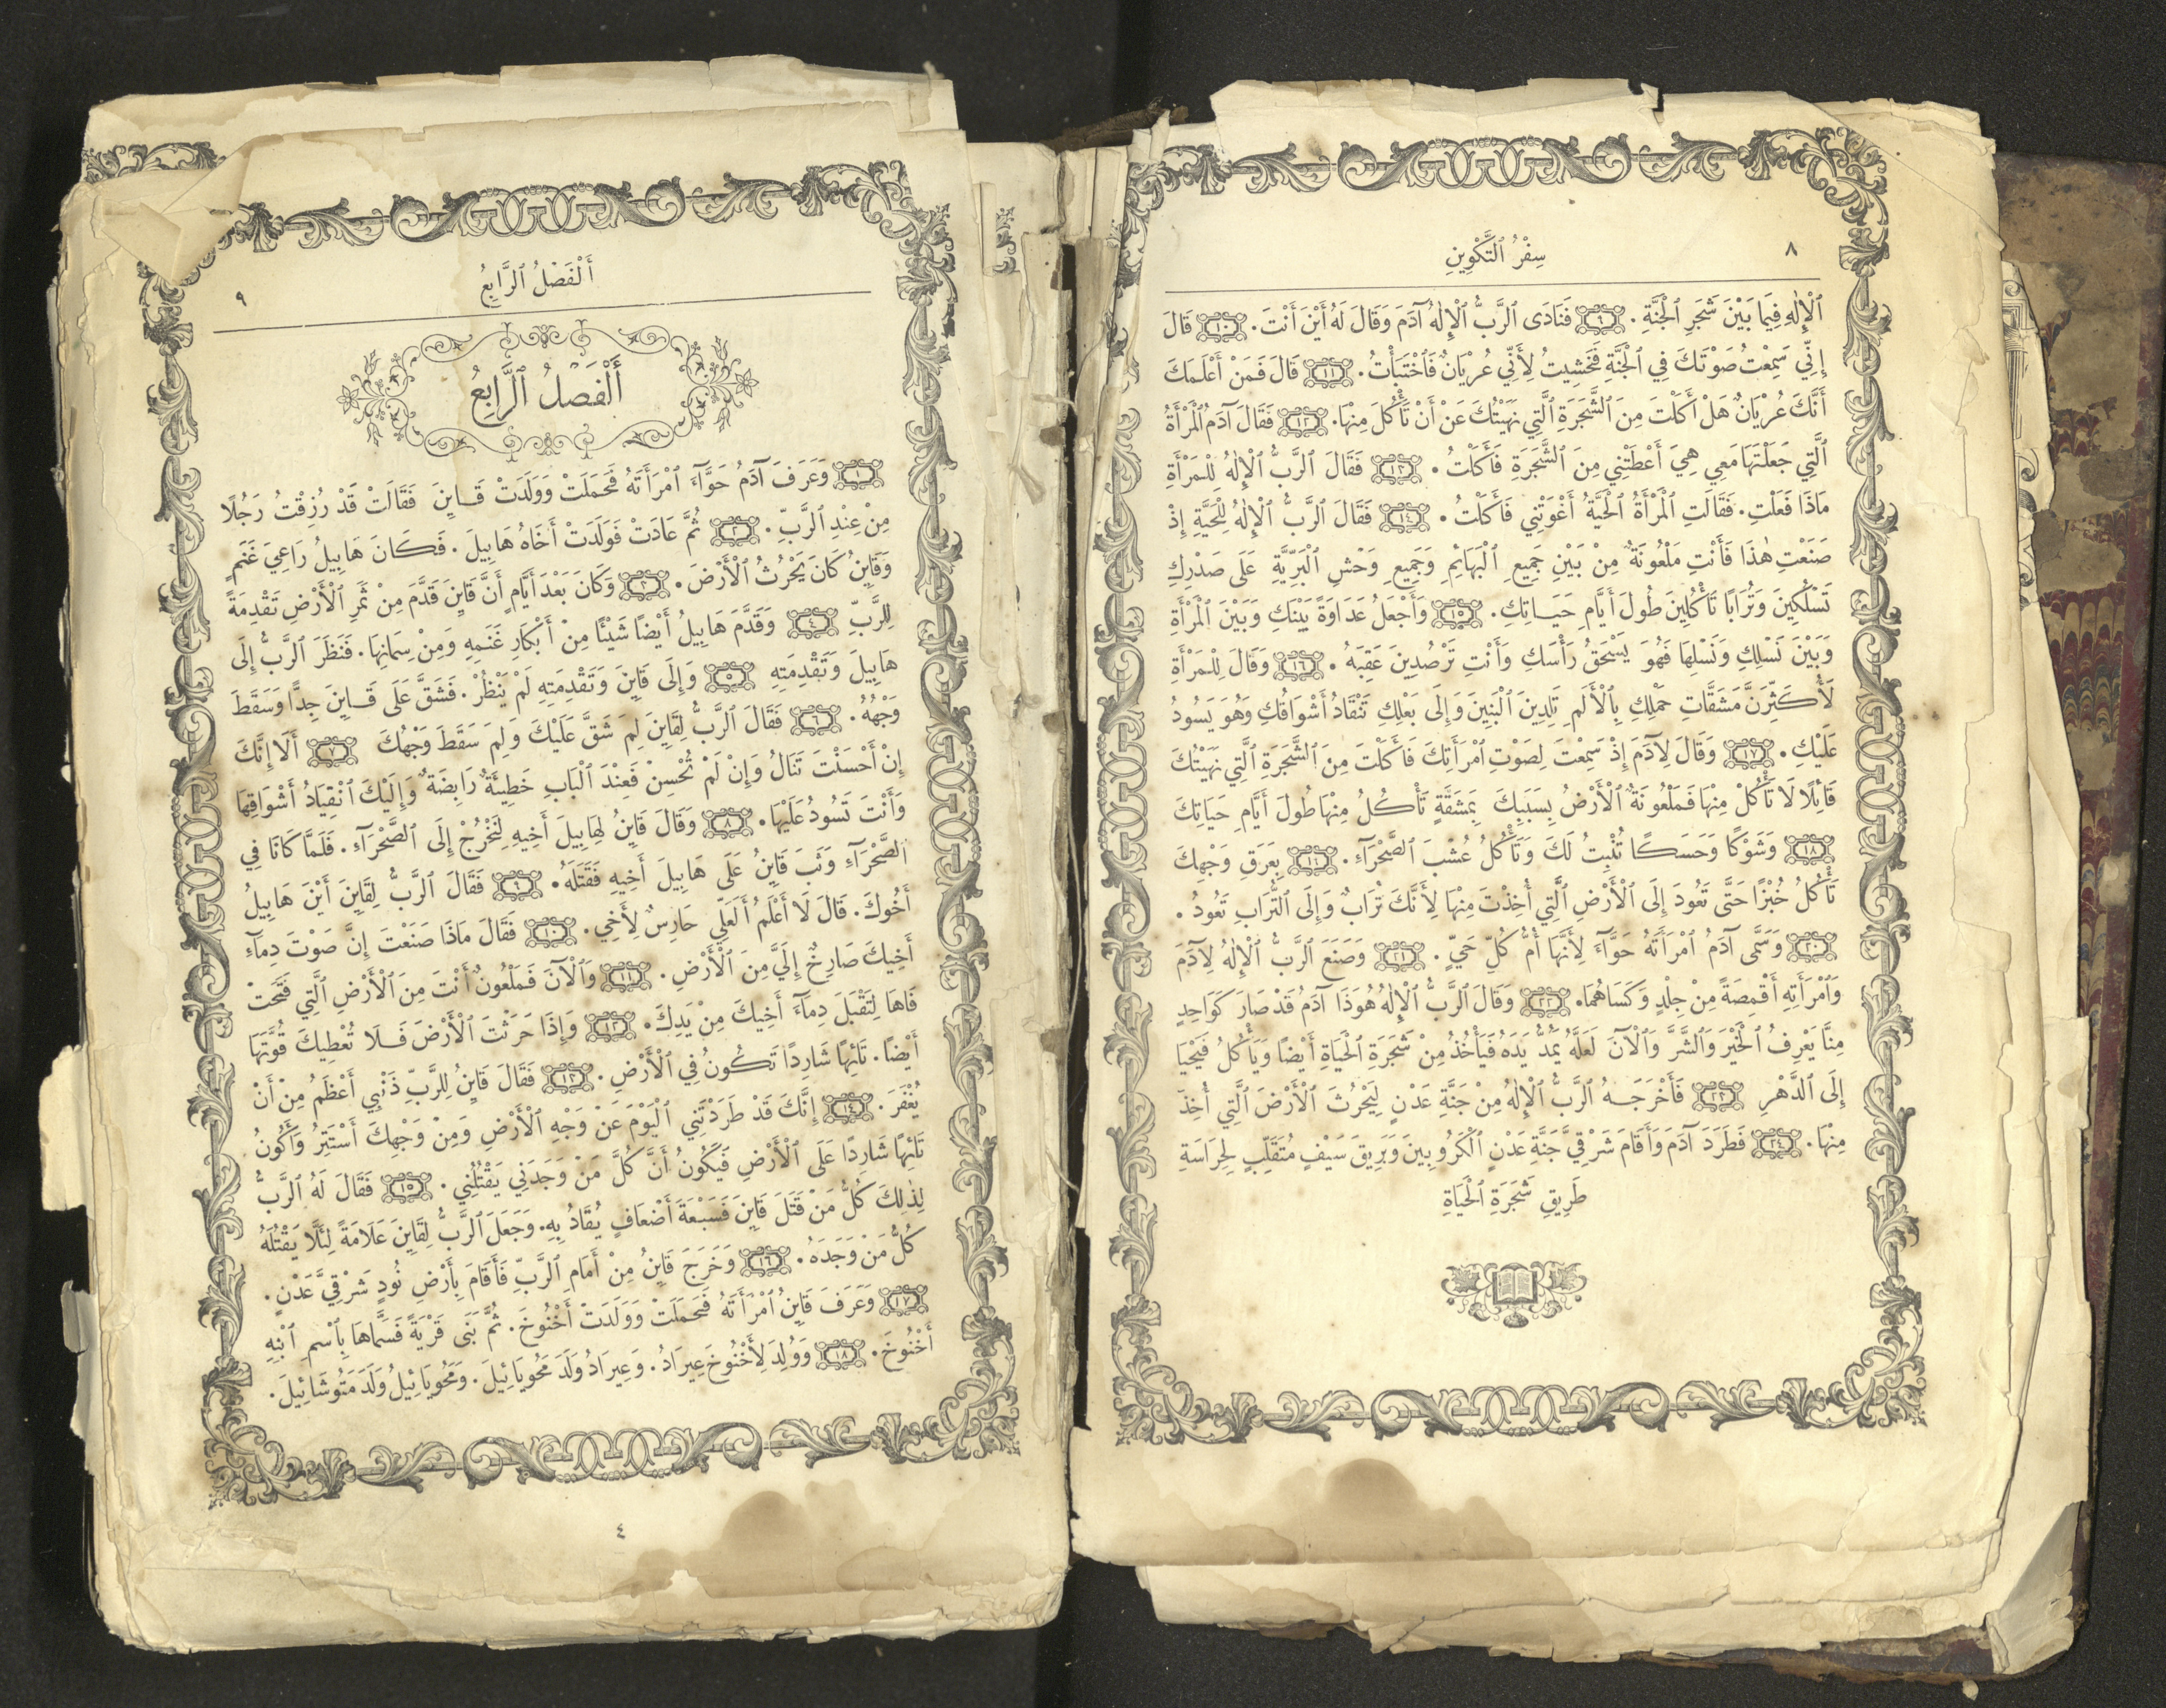 ٨
سِفْرُ ٱلتَّكْوِينِ
ٱلْإِلٰهِ فِيَما بَيْنَ شَجَرِ ٱلْجَنَّةِ . ٩ فَنَادَى ٱلرَّبُّ ٱلْإِلٰهُ آدَمَ وَقَالَ لَهُ أَيْنَ أَنْتَ . ١٠ قَالَ
إِنِّي سَمِعْتُ صَوْتَكَ فِي ٱلْجَنَّةِ فَخَشِيتُ لِأَنِّي عُرْيَانٌ فَٱخْتَبَأْتُ . ١١ قَالَ فَمَنْ أَعْلَمَكَ
أَنَّكَ عُرْيَانٌ هَلْ أَكَلْتَ مِنَ ٱلشَّجَرَةِ ٱلَّتِي نَهَيْتُكَ عَنْ أَنْ تَأْكُلَ مِنْهَا . ١٢ فَقَالَ آدَمُ ٱلْمَرْأَةُ
ٱلَّتِي جَعَلْتَهَا مَعِي هِيَ أَعْطَتْنِي مِنَ ٱلشَّجَرَةِ فَأَكَلْتُ . ١٣ فَقَالَ ٱلرَّبُّ ٱلْإِلٰهُ لِلْمَرْأَةِ
مَاذَا فَعَلْتِ . فَقَالَتِ ٱلْمَرْأَةُ ٱلْحَيَّةُ أَغْوَتْنِي فَأَكَلْتُ . ١٤ فَقَالَ ٱلرَّبُّ ٱلْإِلٰهُ لِلْحَيَّةِ إِذْ
صَنَعْتِ هٰذَا فَأَنْتِ مَلْعُونَةٌ مِنْ بَيْنِ جَمِيعِ ٱلْبَهَائِمِ وَجَمِيعِ وَحْشِ ٱلْبَرِّيَّةِ عَلَى صَدْرِكِ
تَسْلُكِينَ وَتُرَابًا تَأْكُلِينَ طُولَ أَيَّامِ حَيَاتِكِ . ١٥ وَأَجْعَلُ عَدَاوَةً بَيْنَكِ وَبَيْنَ ٱلْمَرْأَةِ
وَبَيْنَ نَسْلِكِ وَنَسْلِهَا فَهُوَ يَسْحَقُ رَأْسَكِ وَأَنْتِ تَرْصُدِينَ عَقِبَهُ . ١٦ وَقَالَ لِلْمَرْأَةِ
لَأُكَثِّرَنَّ مَشَقَّاتِ حَمْلِكِ بِٱلْأَلَمِ تَلِدِينَ ٱلْبَنِينَ وَإِلَى بَعْلِكِ تَنْقَادُ أَشْوَاقُكِ وَهُوَ يَسُودُ
عَلَيْكِ . ١٧ وَقَالَ لِآدَمَ إِذْ سَمِعْتَ لِصَوْتِ ٱمْرَأَتِكَ فَأَكَلْتَ مِنَ ٱلشَّجَرَةِ ٱلَّتِي نَهَيْتُكَ
قَائِلًا لَا تَأْكُلْ مِنْهَا فَمَلْعُونَةٌ ٱلْأَرْضُ بِسَبَبِكَ بِمَشَقَّةٍ تَأْكُلُ مِنْهَا طُولَ أَيَّامِ حَيَاتِكَ
١٨ وَشَوْكًا وَحَسَكًا تُنْبِتُ لَكَ وَتَأْكُلُ عُشْبَ ٱلصَّحْرَآءِ . ١٩ بِعَرَقِ وَجْهِكَ
تَأْكُلُ خُبْزًا حَتَّى تَعُودَ إِلَى ٱلْأَرْضِ ٱلَّتِي أُخِذْتَ مِنْهَا لِأَنَّكَ تُرَابٌ وَإِلَى ٱلتُّرَابِ تَعُودُ .
٢٠ وَسَمَّى آدَمُ ٱمْرَأَتَهُ حَوَّآءَ لِأَنَّهَا أُمُّ كُلِّ حَيٍّ . ٢١ وَصَنَعَ ٱلرَّبُّ ٱلْإِلٰهُ لِآدَمَ
وَٱمْرَأَتِهِ أَقْمِصَةً مِنْ جِلْدٍ وَكَسَاهُمَا . ٢٢ وَقَالَ ٱلرَّبُّ ٱلْإِلٰهُ هُوَذَا آدَمُ قَدْ صَارَ كَوَاحِدٍ
مِنَّا يَعْرِفُ ٱلْخَيْرَ وَٱلشَّرَّ وَٱلْآنَ لَعَلَّهُ يَمُدُّ يَدَهُ فَيَأْخُذُ مِنْ شَجَرَةِ ٱلْحَيَاةِ أَيْضًا وَيَأْكُلُ فَيَحْيَا
إِلَى ٱلدَّهْرِ ٢٣ فَأَخْرَجَهُ ٱلرَّبُّ ٱلْإِلٰهُ مِنْ جَنَّةِ عَدْنٍ لِيَحْرُثَ ٱلْأَرْضَ ٱلَّتِي أُخِذَ
مِنْهَا . ٢٤ فَطَرَدَ آدَمَ وَأَقَامَ شَرْقِيَّ جَنَّةِ عَدْنٍ ٱلْكَرُوبِينَ وَبَرِيقَ سَيْفٍ مُتَقَلِّبٍ لِحِرَاسَةِ
طَرِيقِ شَجَرَةِ ٱلْحَيَاةِ
أَلْفَصْلُ ٱلرَّابِعُ
٩
أَلْفَصْلُ ٱلرَّابِعُ
١ وَعَرَفَ آدَمُ حَوَّآءَ ٱمْرَأَتَهُ فَحَمَلَتْ وَوَلَدَتْ قَايِنَ فَقَالَتْ قَدْ رُزِقْتُ رَجُلًا
مِنْ عِنْدِ ٱلرَّبِّ . ٢ ثُمَّ عَادَتْ فَوَلَدَتْ أَخَاهُ هَابِيلَ . فَكَانَ هَابِيلُ رَاعِيَ غَنَمٍ
وَقَايِنُ كَانَ يَحْرُثُ ٱلْأَرْضَ . ٣ وَكَانَ بَعْدَ أَيَّامٍ أَنَّ قَايِنَ قَدَّمَ مِنْ ثَمَرِ ٱلْأَرْضِ تَقْدِمَةً
لِلرَّبِّ ٤ وَقَدَّمَ هَابِيلُ أَيْضًا شَيْئًا مِنْ أَبْكَارِ غَنَمِهِ وَمِنْ سِمَانِهَا . فَنَظَرَ ٱلرَّبُّ إِلَى
هَابِيلَ وَتَقْدِمَتِهِ ٥ وَإِلَى قَايِنَ وَتَقْدِمَتِهِ لَمْ يَنْظُرْ . فَشَقَّ عَلَى قَايِنَ جِدًّا وَسَقَطَ
وَجْهُهُ . ٦ فَقَالَ ٱلرَّبُّ لِقَايِنَ لِمَ شَقَّ عَلَيْكَ وَلِمَ سَقَطَ وَجْهُكَ ٧ أَلَا إِنَّكَ
إِنْ أَحْسَنْتَ تَنَالُ وَإِنْ لَمْ تُحْسِنْ فَعِنْدَ ٱلْبَابِ خَطِيئَةٌ رَابِضَةٌ وَإِلَيْكَ ٱنْقِيَادُ أَشْوَاقِهَا
وَأَنْتَ تَسُودُ عَلَيْهَا . ٨ وَقَالَ قَايِنُ لِهَابِيلَ أَخِيهِ لِنَخْرُجْ إِلَى ٱلصَّحْرَآءِ . فَلَمَّا كَانَا فِي
ٱلصَّحْرَآءِ وَثَبَ قَايِنُ عَلَى هَابِيلَ أَخِيهِ فَقَتَلَهُ . ٩ فَقَالَ ٱلرَّبُّ لِقَايِنَ أَيْنَ هَابِيلُ
أَخُوكَ . قَالَ لَا أَعْلَمُ أَلَعَلِّي حَارِسٌ لِأَخِي . ١٠ فَقَالَ مَاذَا صَنَعْتَ إِنَّ صَوْتَ دِمَآءِ
أَخِيكَ صَارِخٌ إِلَيَّ مِنَ ٱلْأَرْضِ . ١١ وَٱلْآنَ فَمَلْعُونٌ أَنْتَ مِنَ ٱلْأَرْضِ ٱلَّتِي فَتَحَتْ
فَاهَا لِتَقْبَلَ دِمَآءَ أَخِيكَ مِنْ يَدِكَ . ١٢ وَإِذَا حَرَثْتَ ٱلْأَرْضَ فَلَا تُعْطِيكَ قُوَّتَهَا
أَيْضًا . تَائِهًا شَارِدًا تَكُونُ فِي ٱلْأَرْضِ . ١٣ فَقَالَ قَايِنُ لِلرَّبِّ ذَنْبِي أَعْظَمُ مِنْ أَنْ
يُغْفَرَ . ١٤ إِنَّكَ قَدْ طَرَدْتَنِي ٱلْيَوْمَ عَنْ وَجْهِ ٱلْأَرْضِ وَمِنْ وَجْهِكَ أَسْتَتِرُ وَأَكُونُ
تَائِهًا شَارِدًا عَلَى ٱلْأَرْضِ فَيَكُونُ أَنَّ كُلَّ مَنْ وَجَدَنِي يَقْتُلُنِي . ١٥ فَقَالَ لَهُ ٱلرَّبُّ
لِذٰلِكَ كُلُّ مَنْ قَتَلَ قَايِنَ فَسَبْعَةَ أَضْعَافٍ يُقَادُ بِهِ . وَجَعَلَ ٱلرَّبُّ لِقَايِنَ عَلَامَةً لِئَلَّا يَقْتُلَهُ
كُلُّ مَنْ وَجَدَهُ . ١٦ وَخَرَجَ قَايِنُ مِنْ أَمَامِ ٱلرَّبِّ فَأَقَامَ بِأَرْضِ نُودٍ شَرْقِيَّ عَدْنٍ .
١٧ وَعَرَفَ قَايِنُ ٱمْرَأَتَهُ فَحَمَلَتْ وَوَلَدَتْ أَخْنُوخَ . ثُمَّ بَنَى قَرْيَةً فَسَمَّاهَا بِٱسْمِ ٱبْنِهِ
أَخْنُوخَ . ١٨ وَوُلِدَ لِأَخْنُوخَ عِيرَادُ . وَعِيرَادُ وَلَدَ مَحُويَائِيلَ . وَمَحُويَائِيلُ وَلَدَ مَتُوشَائِيلَ .
٤